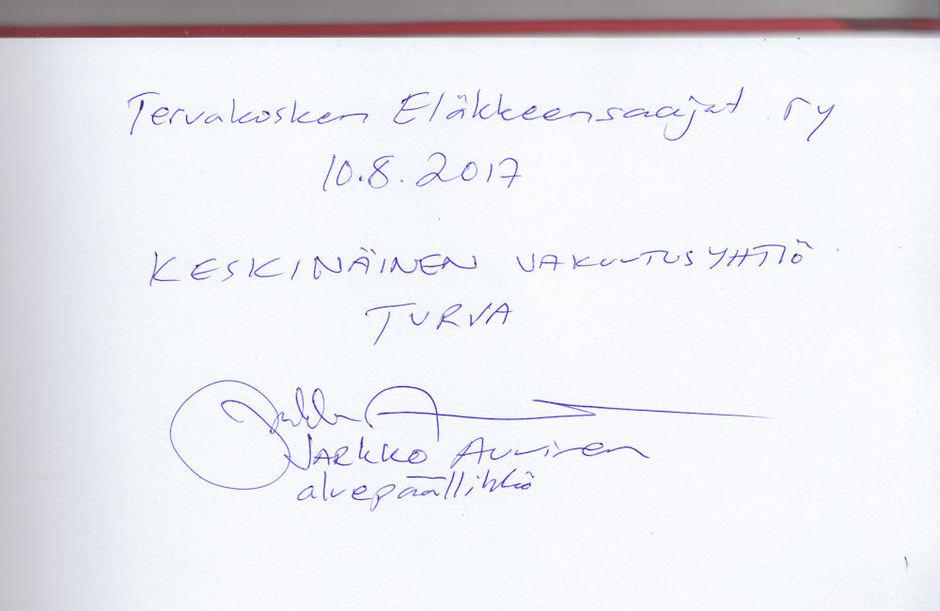 Tervakosken Eläkkeensaajat ry
10.8.2017
KESKINÄINEN VAKUUTUSYHTIÖ
TURVA
JARKKO Auvinen
aluepäällikkö